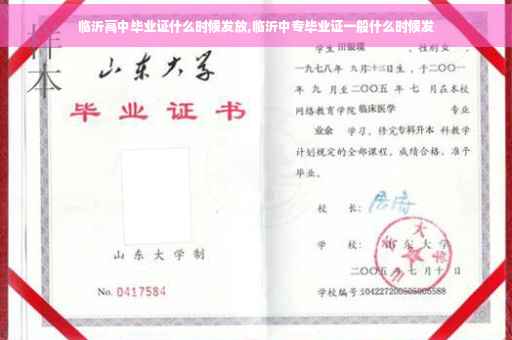 临沂高中毕业证什么时候发放,临沂中专毕业证一般什么时候发
样本
山东大学
毕业证书
山东大学制
No. 0417584
学生 田银環 ,性别女 ,
一九七八年 九月十三日生,于二〇〇一
年 九 月至二〇〇五 年 七 月在本校
网络教育学院临床医学 专业
业余 学习,修完专科升本 科教学
计划规定的全部课程,成绩合格,准予
毕业。
校 长:
学 校:山东大学
二〇〇五年七月十日
学校编号:104227200505005588